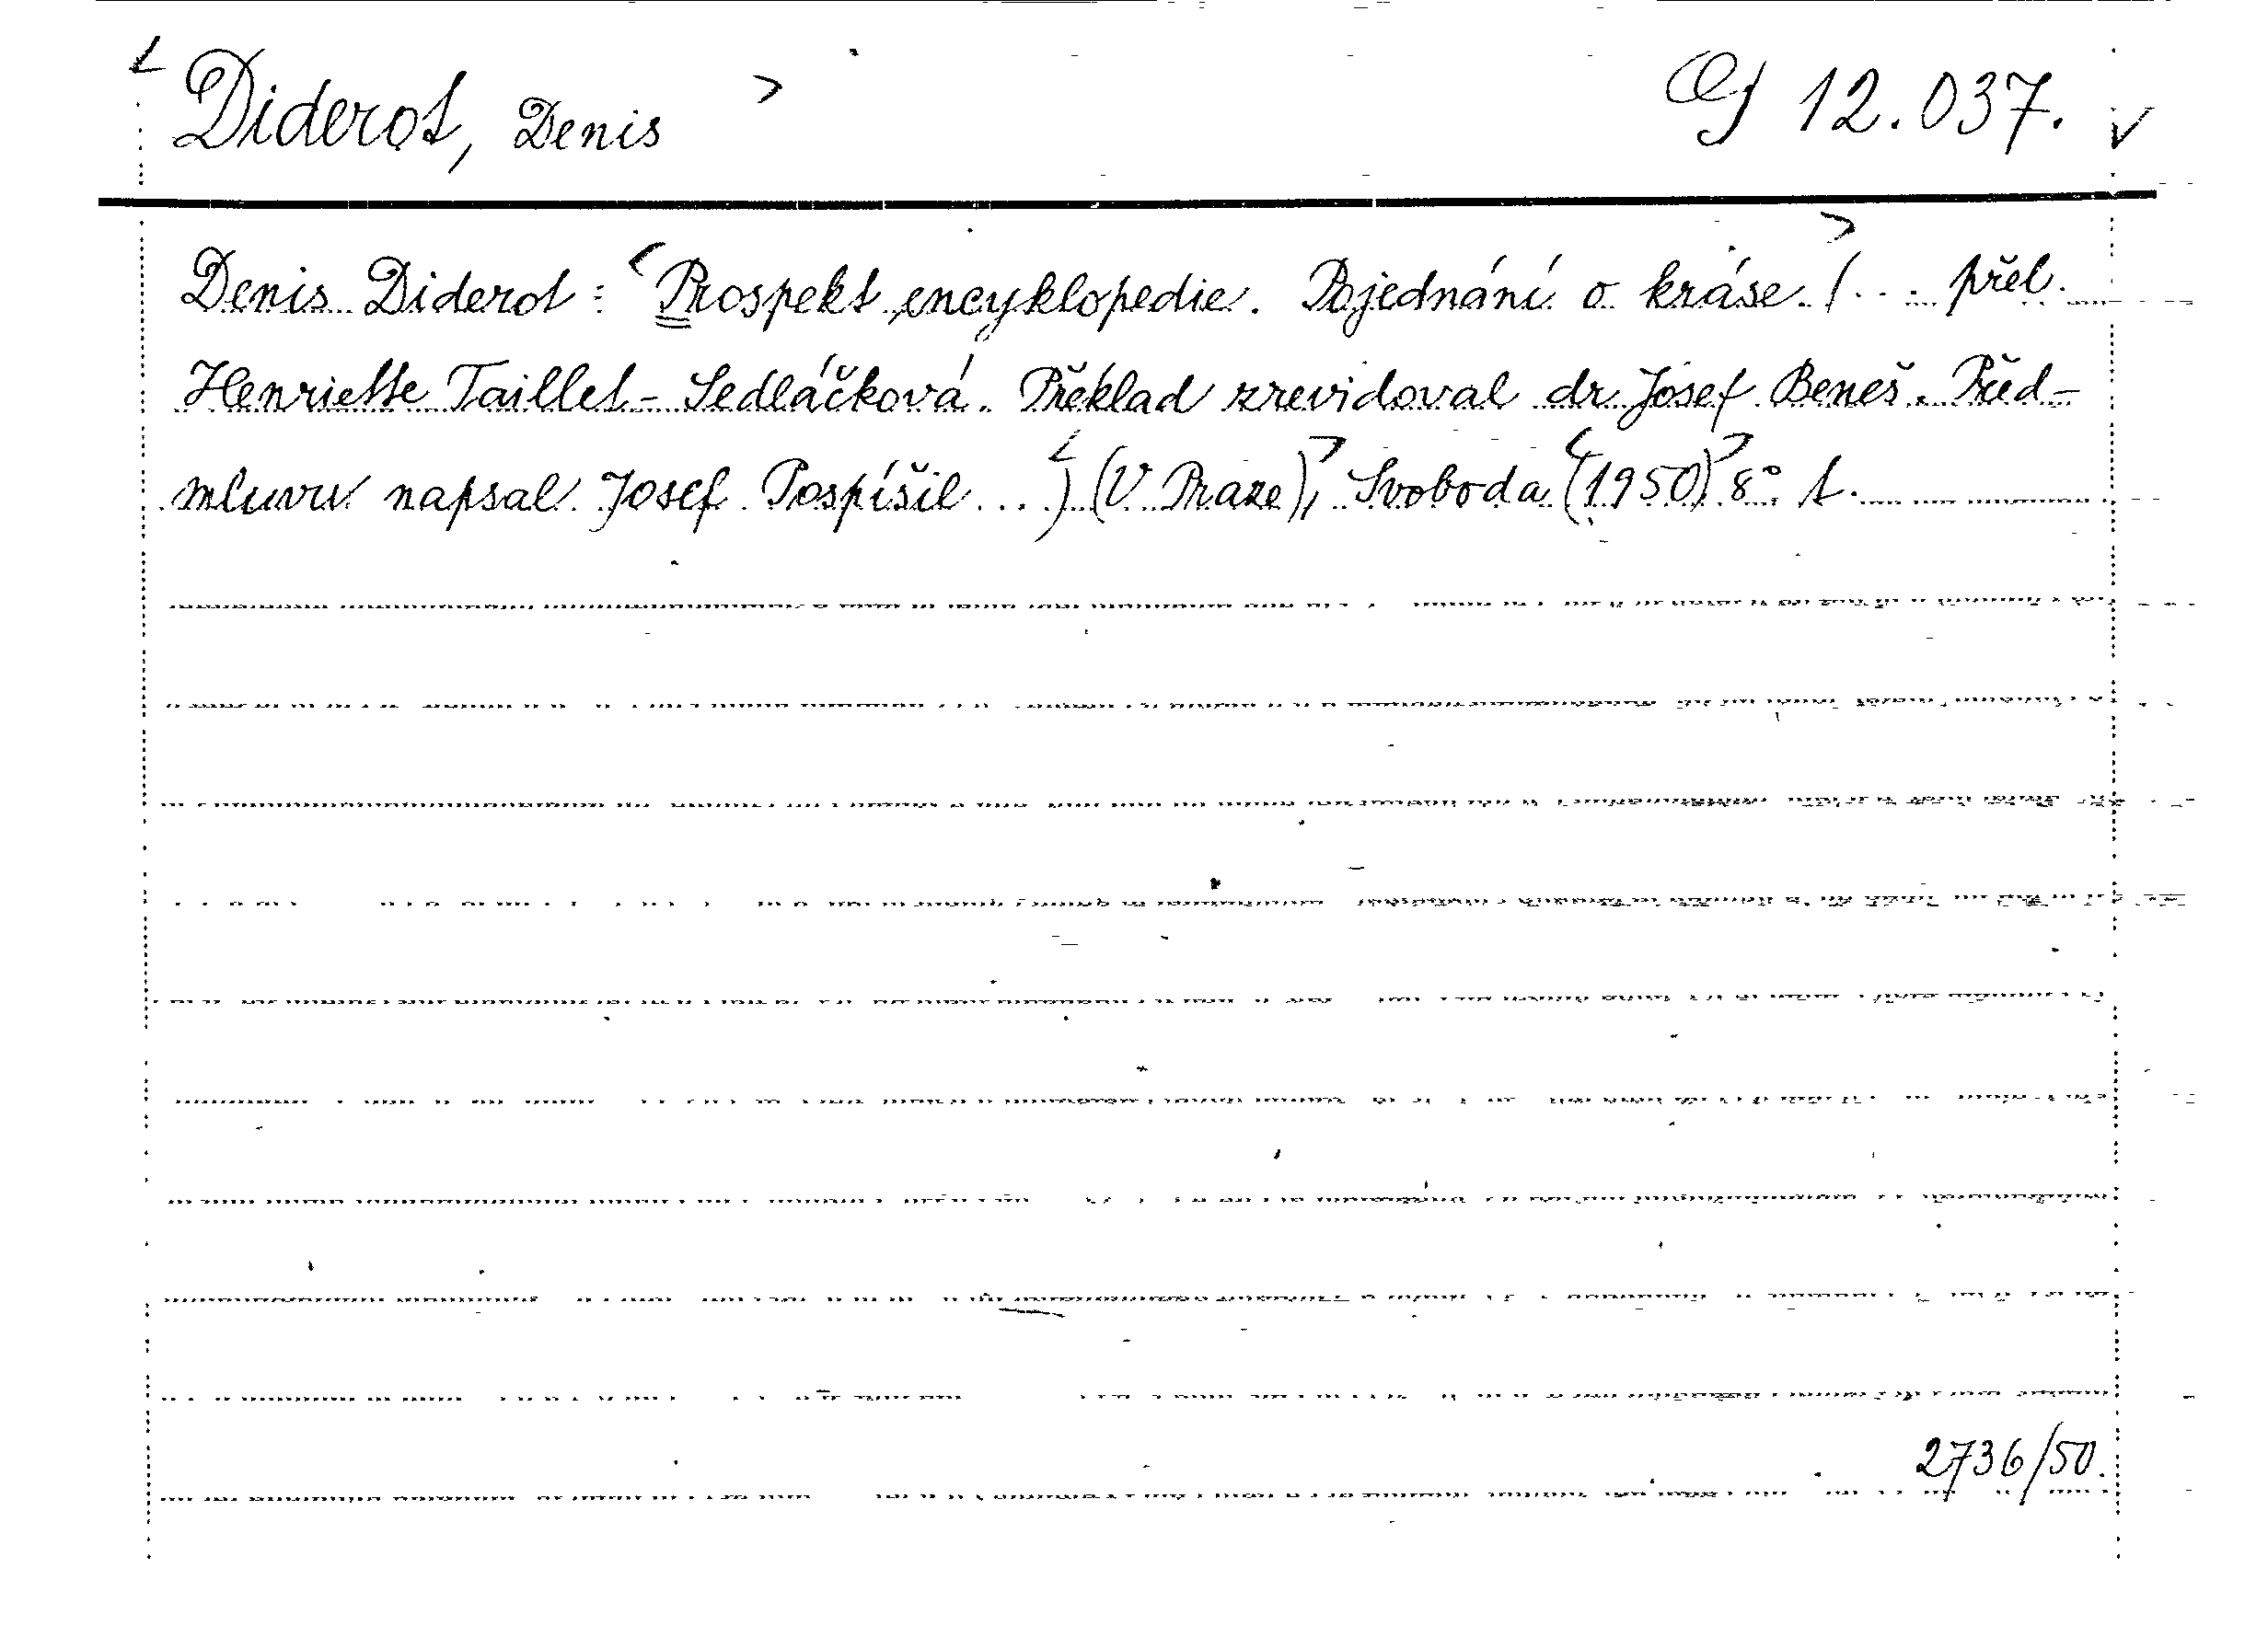 Diderot, Denis
12.037.
Denis Diderot: Prospekt encyklopedie. Pojednání o kráse. (... přel.
Henriette Taillet-Sedláčková. Překlad zrevidoval dr. Josef Beneš. Před-
mluvu napsal Josef Pospíšil ...) (V Praze), Svoboda (1950) 8°. 1.
2736/50.